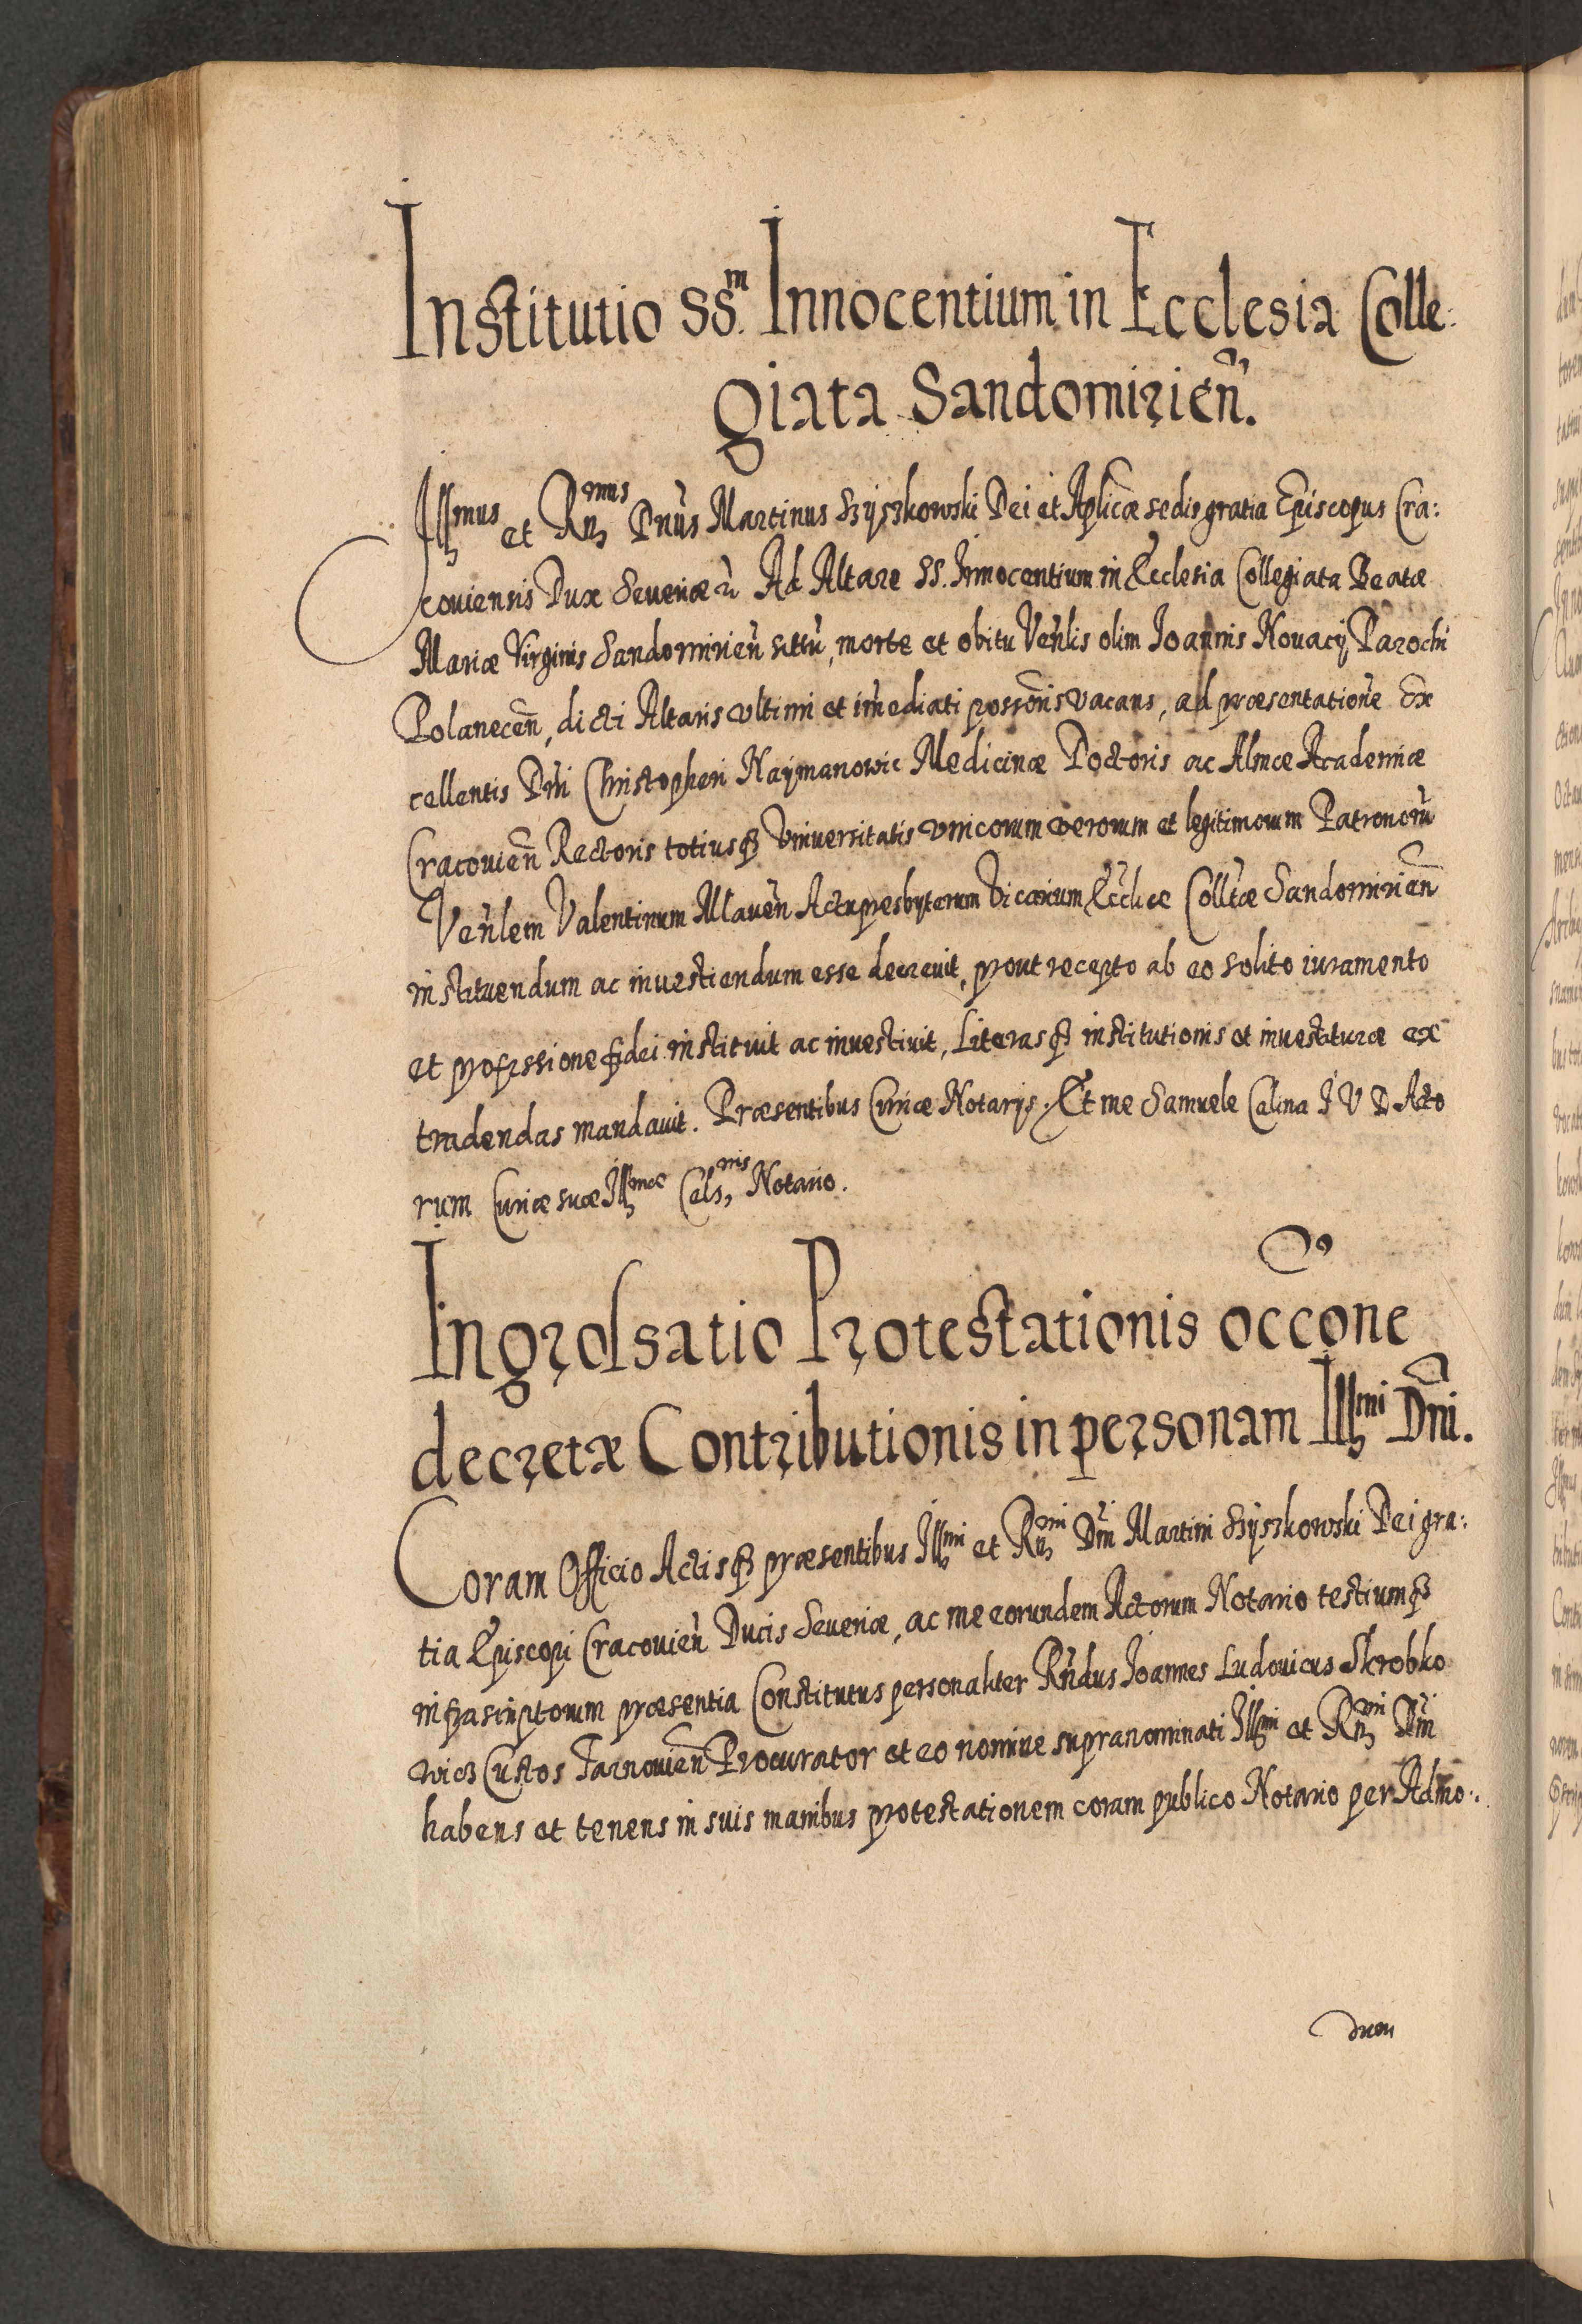 Institutio SS.m Innocentium in Ecclesia Colle:
giata Sandomirien̄.
Illmus et Rnmus Dnūs Martinus Szyszkowski Dei et Aplicæ sedis gratia Episcopus Cra:
coviensis Dux Severiæ Ad Altare SS. Innocentium in Ecclesia Collegiata Beatæ
Mariæ Virginis Sandomirien̄ situ̅, morte et obitu Ven̄lis olim Joannis Novacij Parochi
Polanecen̄, dicti Altaris ultimi et im̄ediati posson̄is vacans, ad præsentatione̅ Ex
cellentis Dn̄i Christopheri Naÿmanowic Medicinæ Doctoris ac Almæ Academiæ
Cracovien̄ Rectoris totiusq3 Universitatis unicorum verorum et legitimorum Patronoru̅
Ven̄lem Valentinum Mlaven̄ Actupresbyterum Vicarium Ecclıæ Colltæ Sandomirien̄
instituendum ac investiendum esse decrevit, prout recepto ab eo solito iuramento
et professione fidei instituit ac investivit, Literasq3 institutionis et investituræ ex
tradendas mandavit. Præsentibus Curiæ Notarijs. Et me Samuele Calina I V D Acto
rum Curiæ suæ Illmæ Cels,nis Notario.
Ingrossatio Protestationis occōne
decretæ Contributionis in personam Illmi Dn̄i.
Coram Officio Actisq3 præsentibus Illmi et Rnmi Dn̄i Martini Szyszkowski Dei gra:
tia Episcopi Cracovien̄ Ducis Severiæ, ac me eorundem Actorum Notario testiumq3
infrascriptorum præsentia Constitutus personaliter Rn̄dus Joannes Ludovicus Skrobko
wicz Custos Tarnovien̄ Procurator et eo nomine supranominati Illmi et Rnmi Dn̄i
habens et tenens in suis manibus protestationem coram publico Notario per Admo:
dum